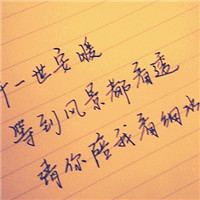 十一世安暖
等到风景都看透
请你陪我看细水